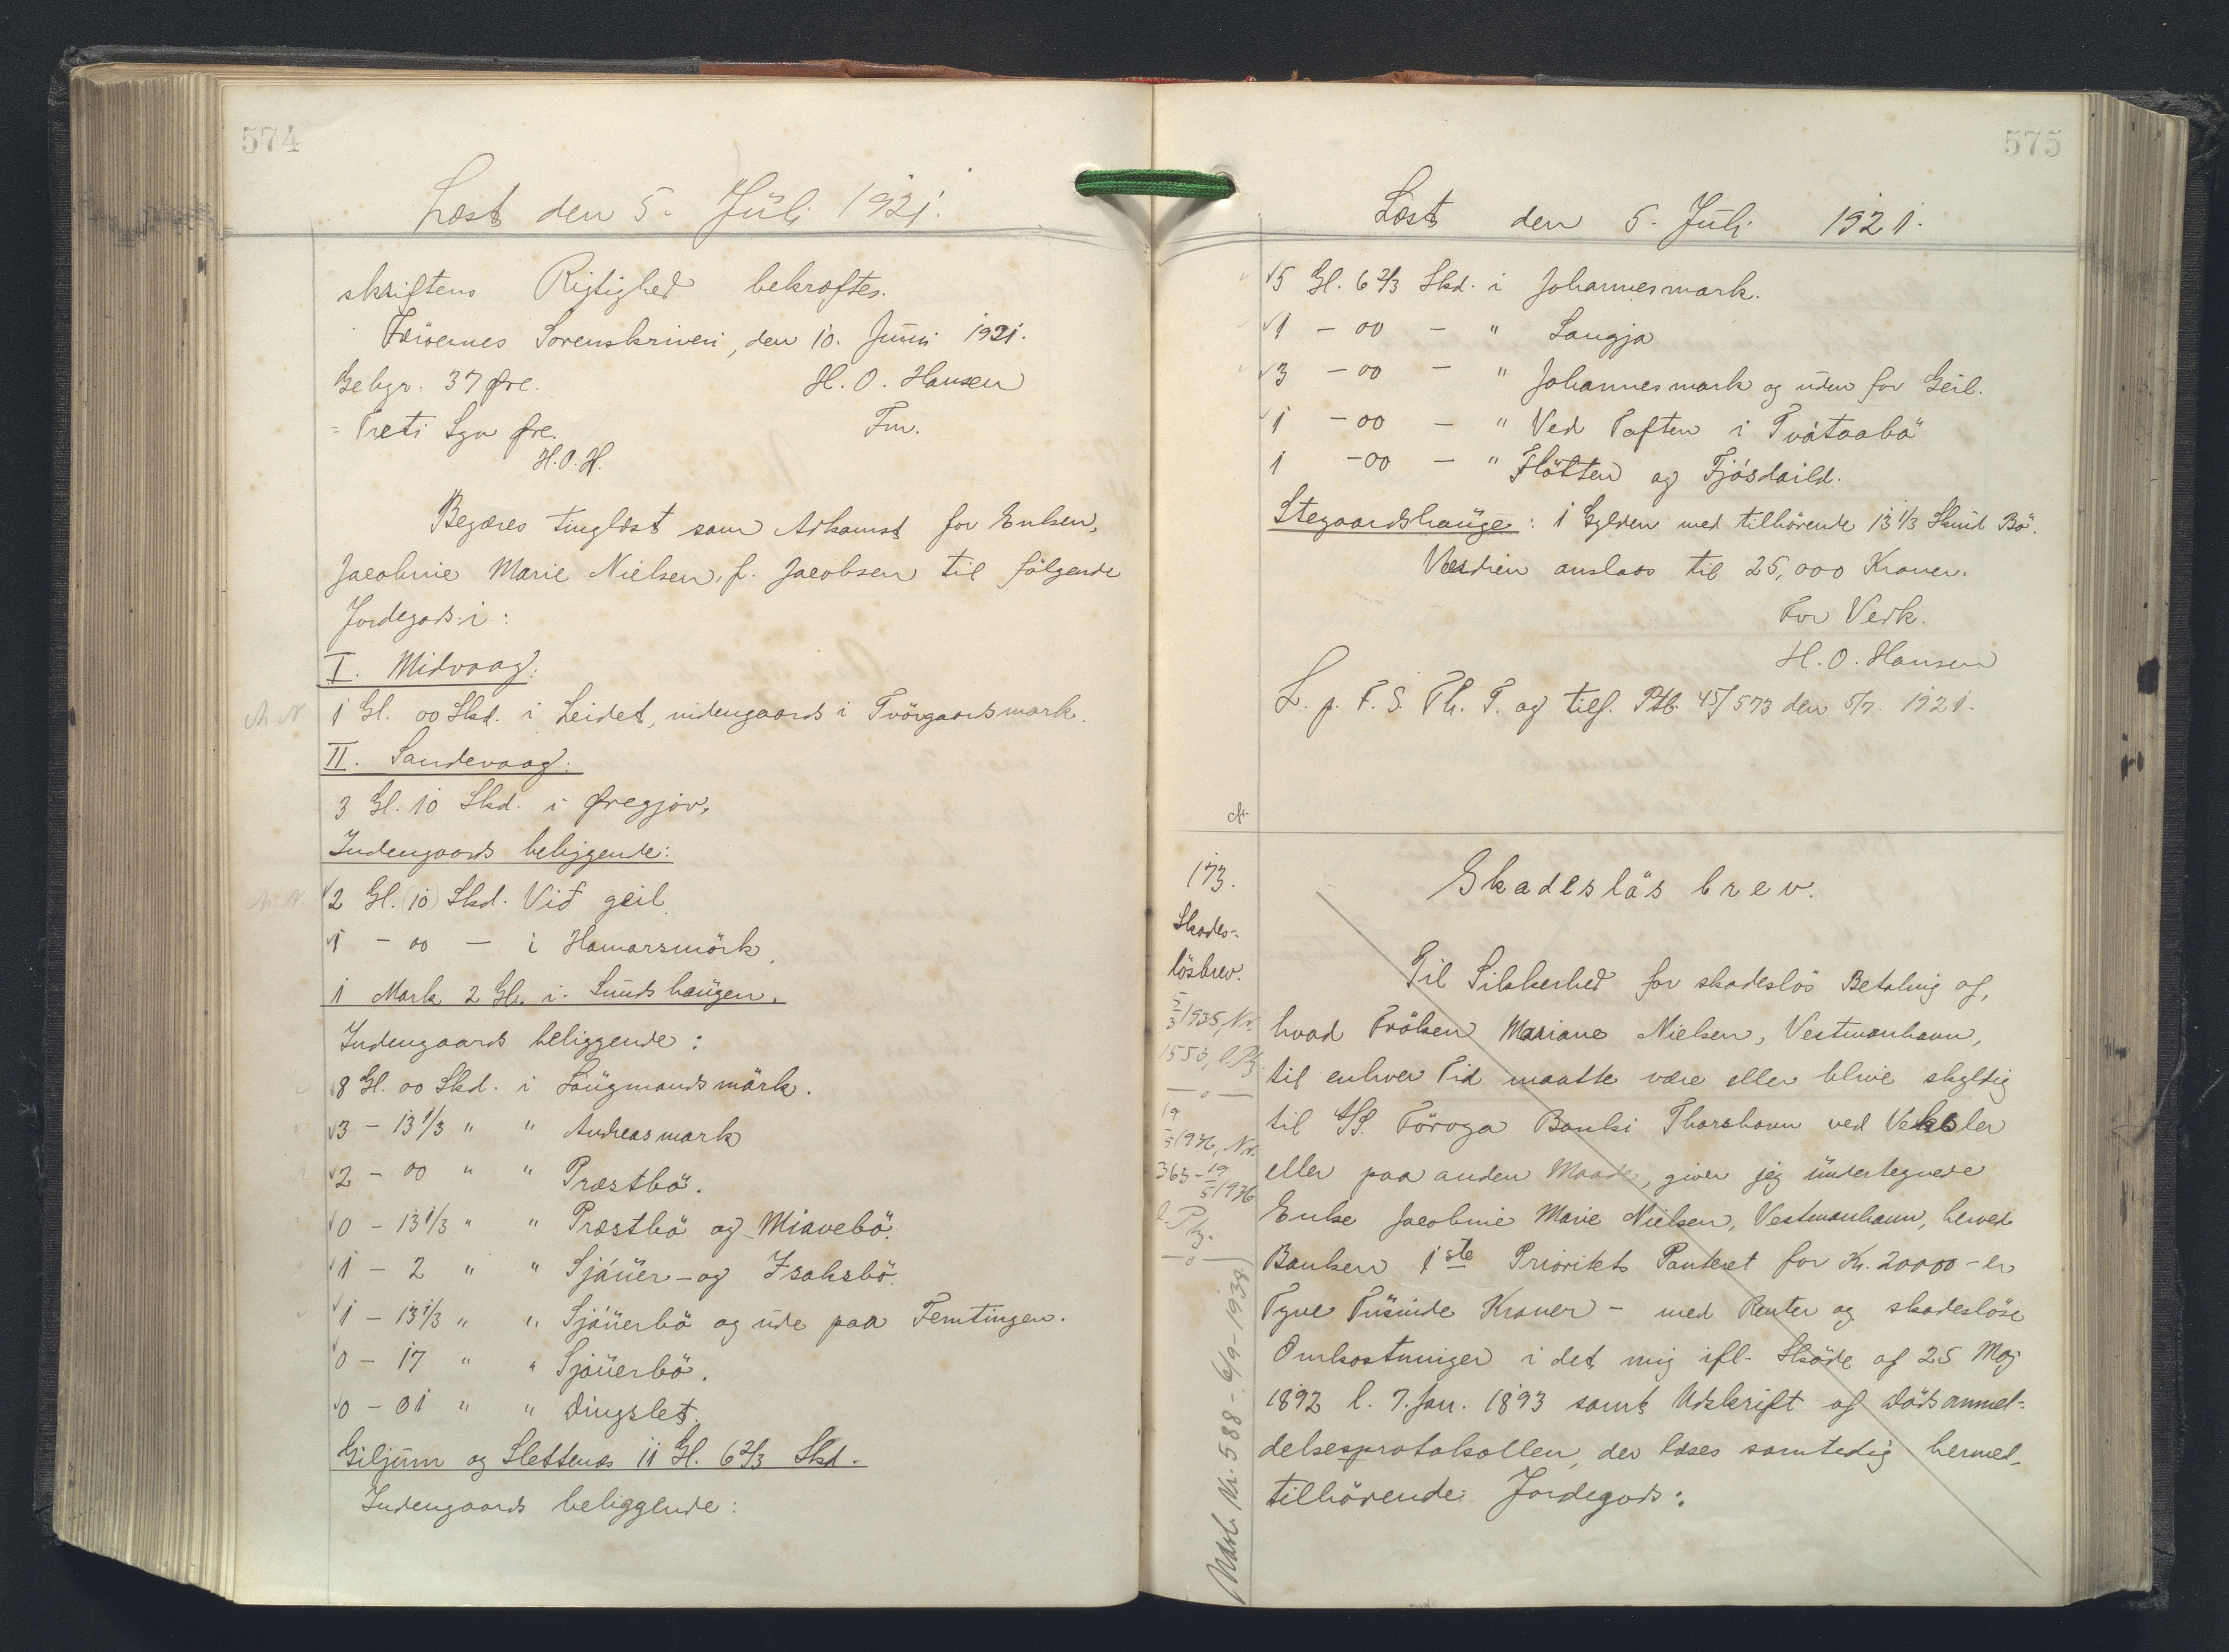 574
Læst den 5. Juli 1921.
skriftens Rigtighed bekræftes.
Færøernes Sorenskriveri, den 10. Juni 1921.
Gebyr: 37 Øre. H. O. Hansen
= Treti Syv Øre. Fm.
H.O.H.
Begæres tinglæst som Adkomst for Enken,
Jacobine Marie Nielsen, f. Jacobsen til følgende
Jordegods i:
I. Midvaag:
1 Gl. 00 Skd. i Leidet, uidengaards i Tvörgaardsmark.
II. Sandevaag:
3 Gl. 10 Skd. i Øregjov,
Indengaards beliggende:
√2 Gl. (10) Skd. Við geil
√1 - 00 - i Hamarsmörk,
1 Mark 2 Gl. i Sunds haugen.
Indengaards beliggende:
√8 Gl. 00 Skd. i Laugmandsmärk.
√3 - 13 1/3 " " Andreasmark
√2 - 00 " " Præstbö.
√0 - 13 1/3 " " Præstbö og Miavebö.
√1 - 2 " " Sjáuer- og Isaksbö.
√1 - 13 1/3 " " Sjáuerbö og ude paa Femtingen.
√0 - 17 " " Sjáuerbö.
√0 - 01 " " Dingslet.
Giljum og Slettenæs 11 Gl. 6 2/3 Skd.
Indengaards beliggende:
575
Læst den 5. Juli 1921.
√5 Gl. 6 2/3 Skd. i Johannesmark.
√1 - 00 - " Langja
√3 - 00 - " Johannesmark og uden for Geil.
√1 - 00 - " Ved Toften i Tvátaabö
1 - 00 - " Flötten og Fjósdaild.
Stegaardshauge: 1 Gylden med tilhörende 13 1/3 Skind Bö.
Værdien anslaas til 25,000 Kroner.
For Vedk.
H. O. Hansen
L. p. F. S. Th. T. og tilf. Ptb. 45/573 den 5/7. 1921.
173.
Skades-
lösbrev.
5/3 1935, Nr.
1550, l. Pg.
—o—
19/5 1936, Nr.
363 - 19/5 1936
l. Pg.
—o—
Udsl. Nr. 588 - 6/9-1938
Skadeslös brev.
Til Sikkerhed for skadeslös Betaling af,
hvad Fröken Mariane Nielsen, Vestmanhavn,
til enhver Tid maatte være eller blive skyldig
til A/S. Föroya Banki Thorshavn ved Veksler
eller paa anden Maade, giver jeg undertegnede
Enke Jacobine Marie Nielsen, Vestmanhavn, herved
Banken 1ste Prioritets Panteret for Kr. 20000 - er
Tyve Tusinde Kroner - med Renter og skadeslöse
Omkostninger i det mig ifl. Sköde af 25 Maj
1892 l. 7. Jan. 1893 samt Udskrift af Dödsanmel-
delsesprotokollen, der læses samtidig hermed,
tilhörende Jordegods: